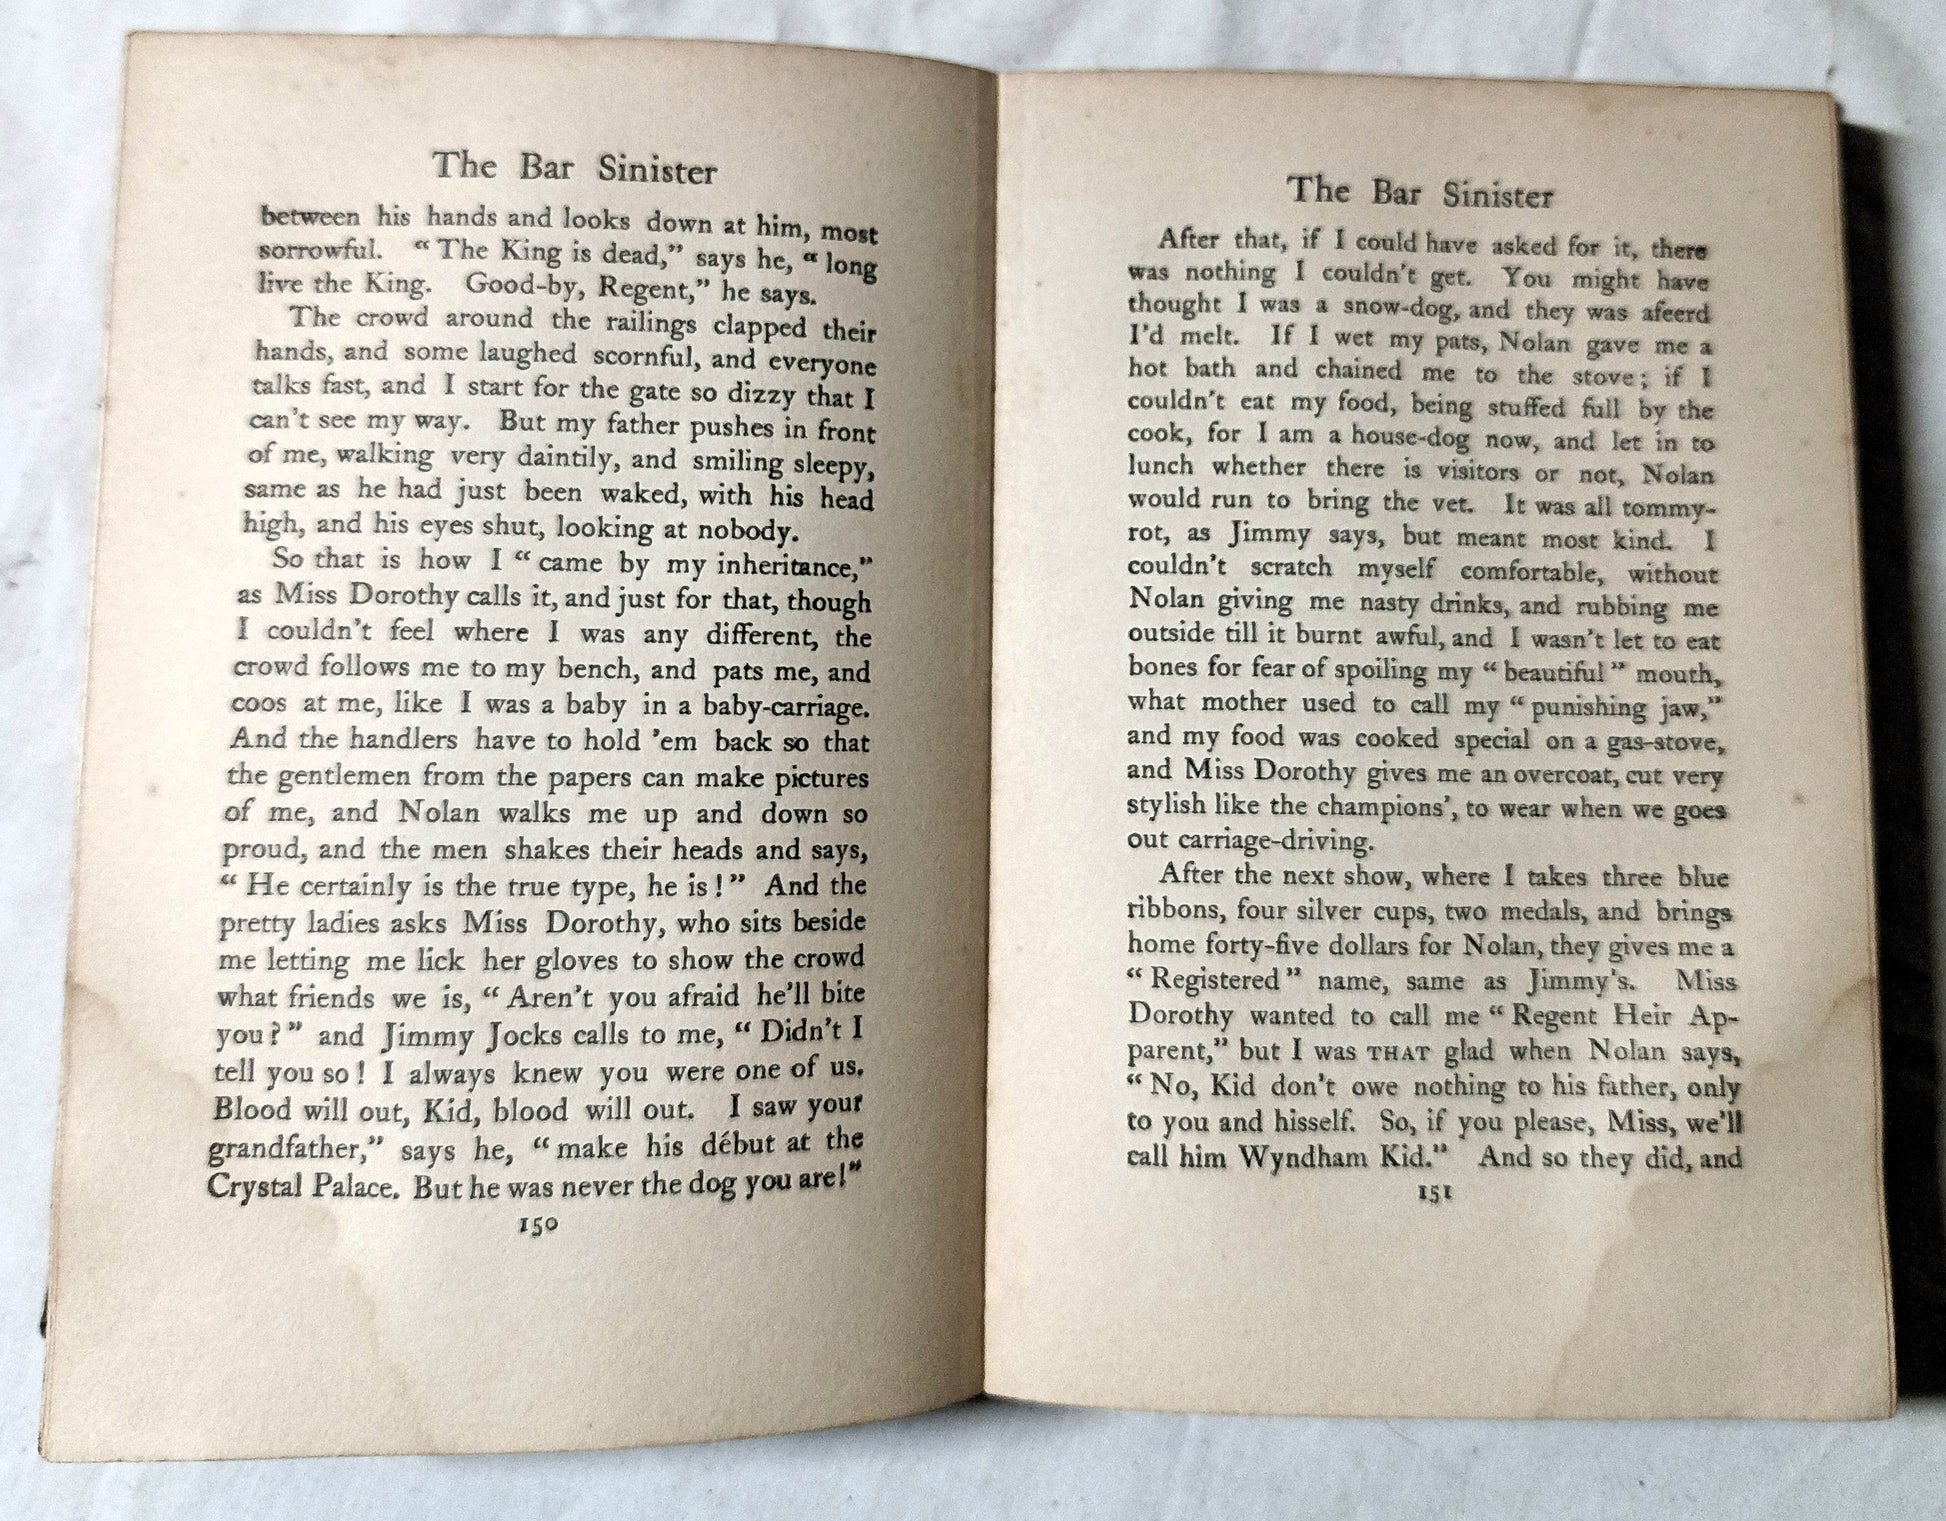 The Bar Sinister
between his hands and looks down at him, most
sorrowful. “The King is dead,” says he, “long
live the King. Good-by, Regent,” he says.
The crowd around the railings clapped their
hands, and some laughed scornful, and everyone
talks fast, and I start for the gate so dizzy that I
can't see my way. But my father pushes in front
of me, walking very daintily, and smiling sleepy,
same as he had just been waked, with his head
high, and his eyes shut, looking at nobody.
So that is how I “came by my inheritance,”
as Miss Dorothy calls it, and just for that, though
I couldn't feel where I was any different, the
crowd follows me to my bench, and pats me, and
coos at me, like I was a baby in a baby-carriage.
And the handlers have to hold 'em back so that
the gentlemen from the papers can make pictures
of me, and Nolan walks me up and down so
proud, and the men shakes their heads and says,
“He certainly is the true type, he is!” And the
pretty ladies asks Miss Dorothy, who sits beside
me letting me lick her gloves to show the crowd
what friends we is, “Aren't you afraid he'll bite
you?” and Jimmy Jocks calls to me, “Didn't I
tell you so! I always knew you were one of us.
Blood will out, Kid, blood will out. I saw your
grandfather,” says he, “make his début at the
Crystal Palace. But he was never the dog you are!”
150
The Bar Sinister
After that, if I could have asked for it, there
was nothing I couldn't get. You might have
thought I was a snow-dog, and they was afeerd
I'd melt. If I wet my pats, Nolan gave me a
hot bath and chained me to the stove; if I
couldn't eat my food, being stuffed full by the
cook, for I am a house-dog now, and let in to
lunch whether there is visitors or not, Nolan
would run to bring the vet. It was all tommy-
rot, as Jimmy says, but meant most kind. I
couldn't scratch myself comfortable, without
Nolan giving me nasty drinks, and rubbing me
outside till it burnt awful, and I wasn't let to eat
bones for fear of spoiling my “beautiful” mouth,
what mother used to call my “punishing jaw,”
and my food was cooked special on a gas-stove,
and Miss Dorothy gives me an overcoat, cut very
stylish like the champions', to wear when we goes
out carriage-driving.
After the next show, where I takes three blue
ribbons, four silver cups, two medals, and brings
home forty-five dollars for Nolan, they gives me a
“Registered” name, same as Jimmy's. Miss
Dorothy wanted to call me “Regent Heir Ap-
parent,” but I was THAT glad when Nolan says,
“No, Kid don't owe nothing to his father, only
to you and hisself. So, if you please, Miss, we'll
call him Wyndham Kid.” And so they did, and
151